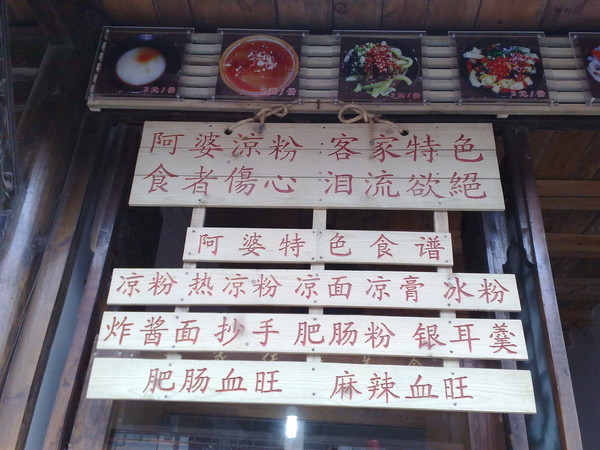 3元/份 3元/份
阿婆涼粉 客家特色
食者傷心 泪流欲絕
阿婆特色食谱
凉粉 热凉粉 凉面 凉膏 冰粉
炸酱面 抄手 肥肠粉 银耳羹
肥肠血旺 麻辣血旺